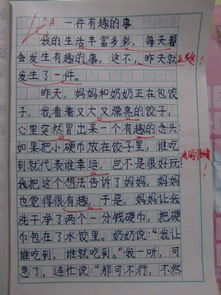 一件有趣的事
我的生活丰富多彩，每天都
会发生有趣的事，这不，昨天就
发生了一件。
昨天，妈妈和奶奶正在包饺
子，我看着又大又漂亮的饺子，
心里突然冒出来一个有趣的念头
如果把小硬币放在饺子里，谁吃
到就代表谁幸运，岂不是很好玩
我把这个想法告诉了妈妈，妈妈
也觉得很有趣，于是，妈妈让我
洗干净了两个一分钱硬币，把硬
币包在了水饺里。奶奶说："让
谁吃到，谁就吃到。"我一听，可
急了，连忙说："那可不行，不然